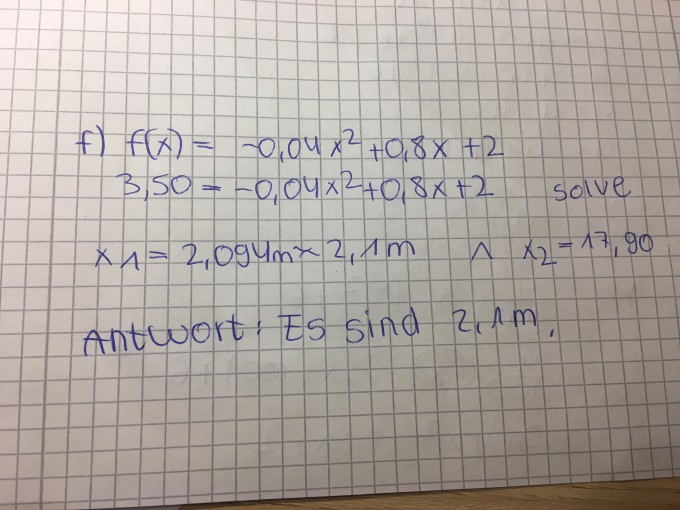 f) f(x) = -0,04x²+0,8x+2
3,50 = -0,04x²+0,8x+2 solve
x1 = 2,094m ≈ 2,1m ∧ x2 = 17,90
Antwort: Es sind 2,1m.